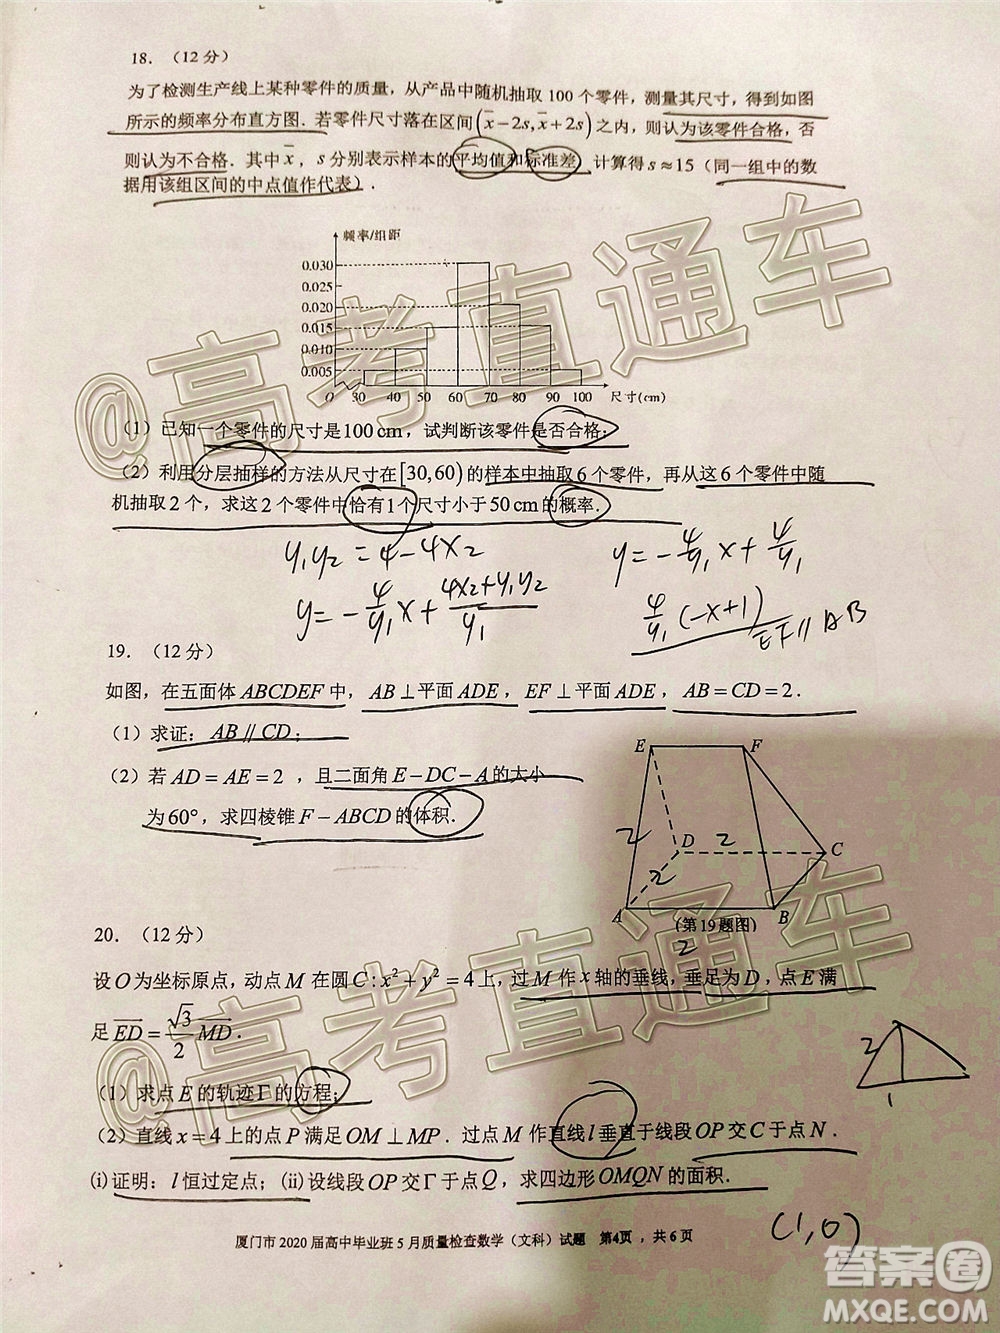 18．（12 分）
为了检测生产线上某种零件的质量，从产品中随机抽取 100 个零件，测量其尺寸，得到如图
所示的频率分布直方图．若零件尺寸落在区间(x̄－2s, x̄＋2s)之内，则认为该零件合格，否
则认为不合格．其中 x̄，s 分别表示样本的平均值和标准差，计算得 s≈15（同一组中的数
据用该组区间的中点值作代表）．
频率/组距
0.030
0.025
0.020
0.015
0.010
0.005
O 30 40 50 60 70 80 90 100 尺寸(cm)
（1）已知一个零件的尺寸是100cm，试判断该零件是否合格；
（2）利用分层抽样的方法从尺寸在[30,60)的样本中抽取6个零件，再从这6个零件中随
机抽取2个，求这2个零件中恰有1个尺寸小于50cm的概率．
y₁y₂=4-4x₂
y=-4/y₁x+4/y₁
y=-4/y₁x+(4x₂+y₁y₂)/y₁
4/y₁(-x+1)
EF∥AB
19．（12 分）
如图，在五面体 ABCDEF 中，AB⊥平面 ADE，EF⊥平面ADE，AB=CD=2．
（1）求证：AB∥CD；
（2）若 AD=AE=2，且二面角 E-DC-A的大小
为60°，求四棱锥 F-ABCD的体积．
E F
2
D 2 C
2
A B
（第19题图）
2
20．（12 分）
设O为坐标原点，动点M在圆C:x²+y²=4上，过M作x轴的垂线，垂足为D，点E满
足ED=√3/2MD．
2
1
（1）求点E的轨迹Γ的方程；
（2）直线x=4上的点P满足OM⊥MP．过点M作直线l垂直于线段OP交C于点N．
(i)证明：l恒过定点；(ii)设线段OP交Γ于点Q，求四边形OMQN的面积．
(1,0)
厦门市2020届高中毕业班5月质量检查数学（文科）试题 第4页，共6页
@高考直通车
@高考直通车
答案圈
MXQE.COM